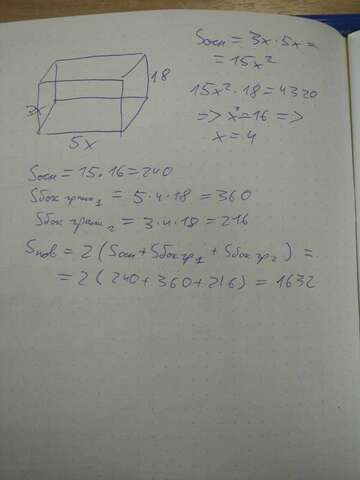 Sосн = 3x·5x =
= 15x²
18
15x²·18 = 4320
3x
=> x² = 16 =>
x = 4
5x
Sосн = 15·16 = 240
Sбок грани₁ = 5·4·18 = 360
Sбок грани₂ = 3·4·18 = 216
Sпов = 2(Sосн + Sбок гр₁ + Sбок гр₂) =
= 2(240+360+216) = 1632